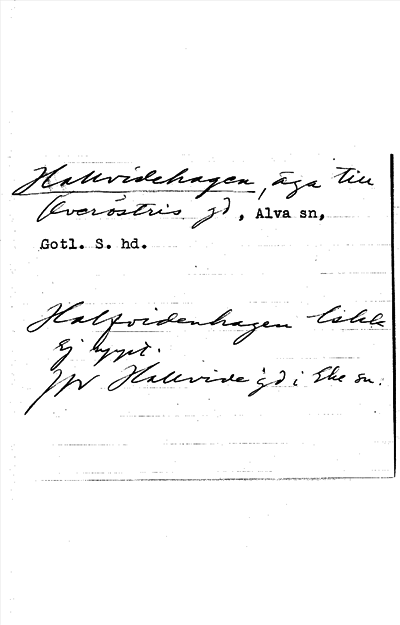 Hallvidehagen, äga till
Överöstris gd, Alva sn,
Gotl. S. hd.
Halfvidenhagen lskk
Ej uppt.
Jfr Hallvide gd i Eke sn.